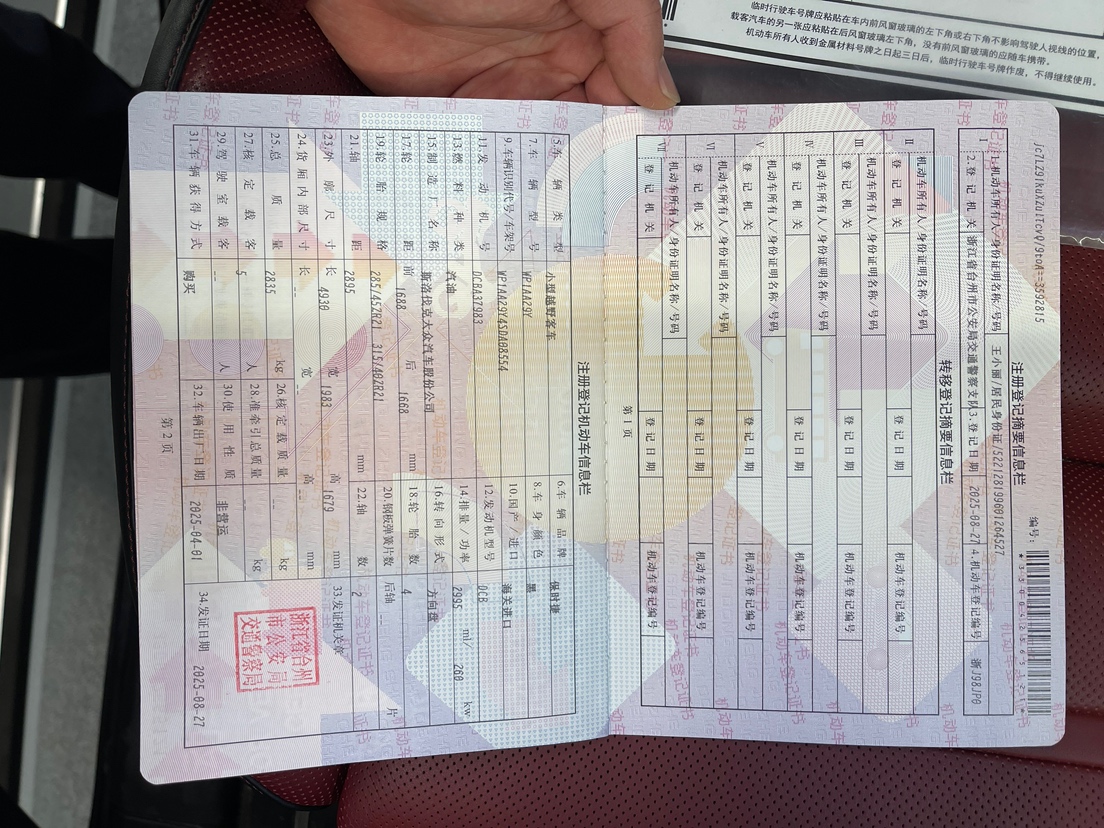 临时行驶车号牌应粘贴在车内前风窗玻璃的左下角或右下角不影响驾驶人视线的位置,
载客汽车的另一张应粘贴在后风窗玻璃左下角,没有前风窗玻璃的应随车携带。
机动车所有人收到金属材料号牌之日起三日后,临时行驶车号牌作废,不得继续使用。
注册登记摘要信息栏
编号:
1.机动车所有人/身份证明名称/号码 王小丽/居民身份证/522128199601264527
2.登记机关 浙江省台州市公安局交通警察支队 3.登记日期 2025-08-27 4.机动车登记编号 浙J98JP0
转移登记摘要信息栏
Ⅱ 机动车所有人/身份证明名称/号码
登记机关 登记日期 机动车登记编号
Ⅲ 机动车所有人/身份证明名称/号码
登记机关 登记日期 机动车登记编号
Ⅳ 机动车所有人/身份证明名称/号码
登记机关 登记日期 机动车登记编号
Ⅴ 机动车所有人/身份证明名称/号码
登记机关 登记日期 机动车登记编号
Ⅵ 机动车所有人/身份证明名称/号码
登记机关 登记日期 机动车登记编号
Ⅶ 机动车所有人/身份证明名称/号码
登记机关 登记日期 机动车登记编号
第1页
注册登记机动车信息栏
5.车辆类型 小型越野客车 6.车辆品牌 保时捷
7.车辆型号 WP1AA29Y 8.车身颜色 黑
9.车辆识别代号/车架号 WP1AA29Y4SDA08554 10.国产/进口 海关进口
11.发动机号 DCBA37983 12.发动机型号 DCB
13.燃料种类 汽油 14.排量/功率 2995 ml/ 260 kw
15.制造厂名称 斯洛伐克大众汽车股份公司 16.转向形式 方向盘
17.轮距 前 1688 后 1668 mm 18.轮胎数 4
19.轮胎规格 285/45ZR21 315/40ZR21 20.钢板弹簧片数 后轴 片
21.轴距 2895 mm 22.轴数 2
23.外廓尺寸 长 4930 宽 1983 高 1679 mm 33.发证机关章
24.货厢内部尺寸 长 -- 宽 -- 高 -- mm
25.总质量 2835 kg 26.核定载质量 -- kg
27.核定载客 5 人 28.准牵引总质量 -- kg
29.驾驶室载客 -- 人 30.使用性质 非营运
31.车辆获得方式 购买 32.车辆出厂日期 2025-04-01 34.发证日期 2025-08-27
浙江省台州
市公安局
交通警察局
第2页